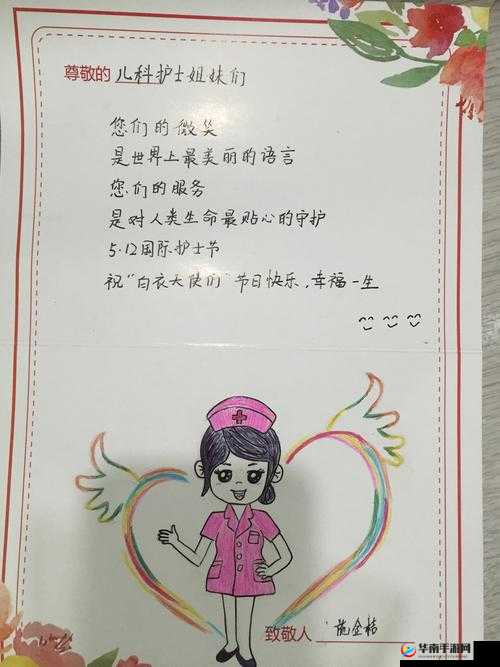 尊敬的 儿科护士姐妹们
您们的微笑
是世界上最美丽的语言
您们的服务
是对人类生命最贴心的守护
5·12国际护士节
祝“白衣天使们”节日快乐,幸福一生
致敬人
华南手游网